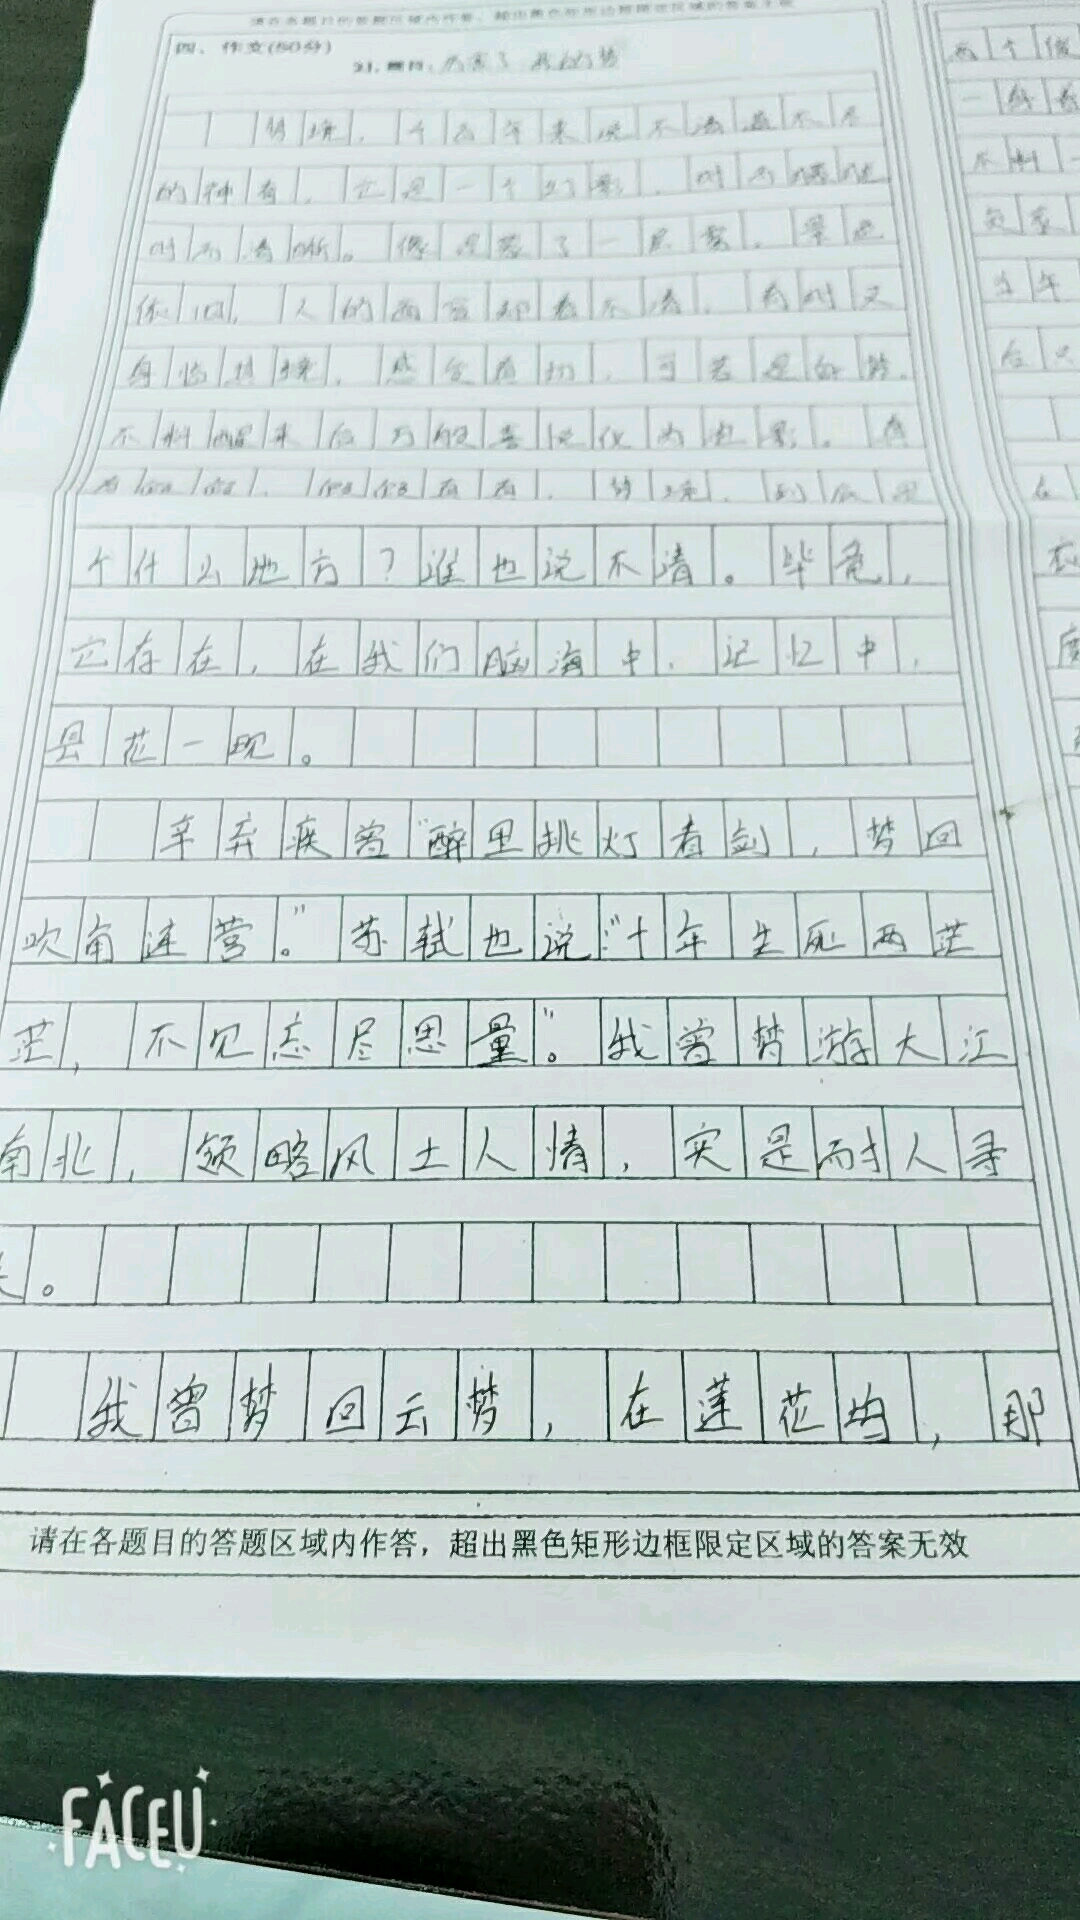 请在各题目的答题区域内作答，超出黑色矩形边框限定区域的答案无效
四、作文(50分)
21.题目：厉害了，我的梦
梦境，千百年来说不清道不尽
的神奇，它是一个幻影，时而模糊
时而清晰。像是蒙了一层雾，景色
依旧，人的面容却看不清，有时又
身临其境，感受真切，可若是如梦，
不料醒来后万般喜悦化为泡影。
梦境，到底是
个什么地方？谁也说不清。毕竟，
它存在，在我们脑海中，记忆中，
昙花一现。
辛弃疾曾“醉里挑灯看剑，梦回
吹角连营。”苏轼也说：“十年生死两茫
茫，不见忘尽思量”。我曾梦游大江
南北，领略风土人情，实是耐人寻
。
我曾梦回云梦，在莲花坞，那
请在各题目的答题区域内作答，超出黑色矩形边框限定区域的答案无效
FACEU